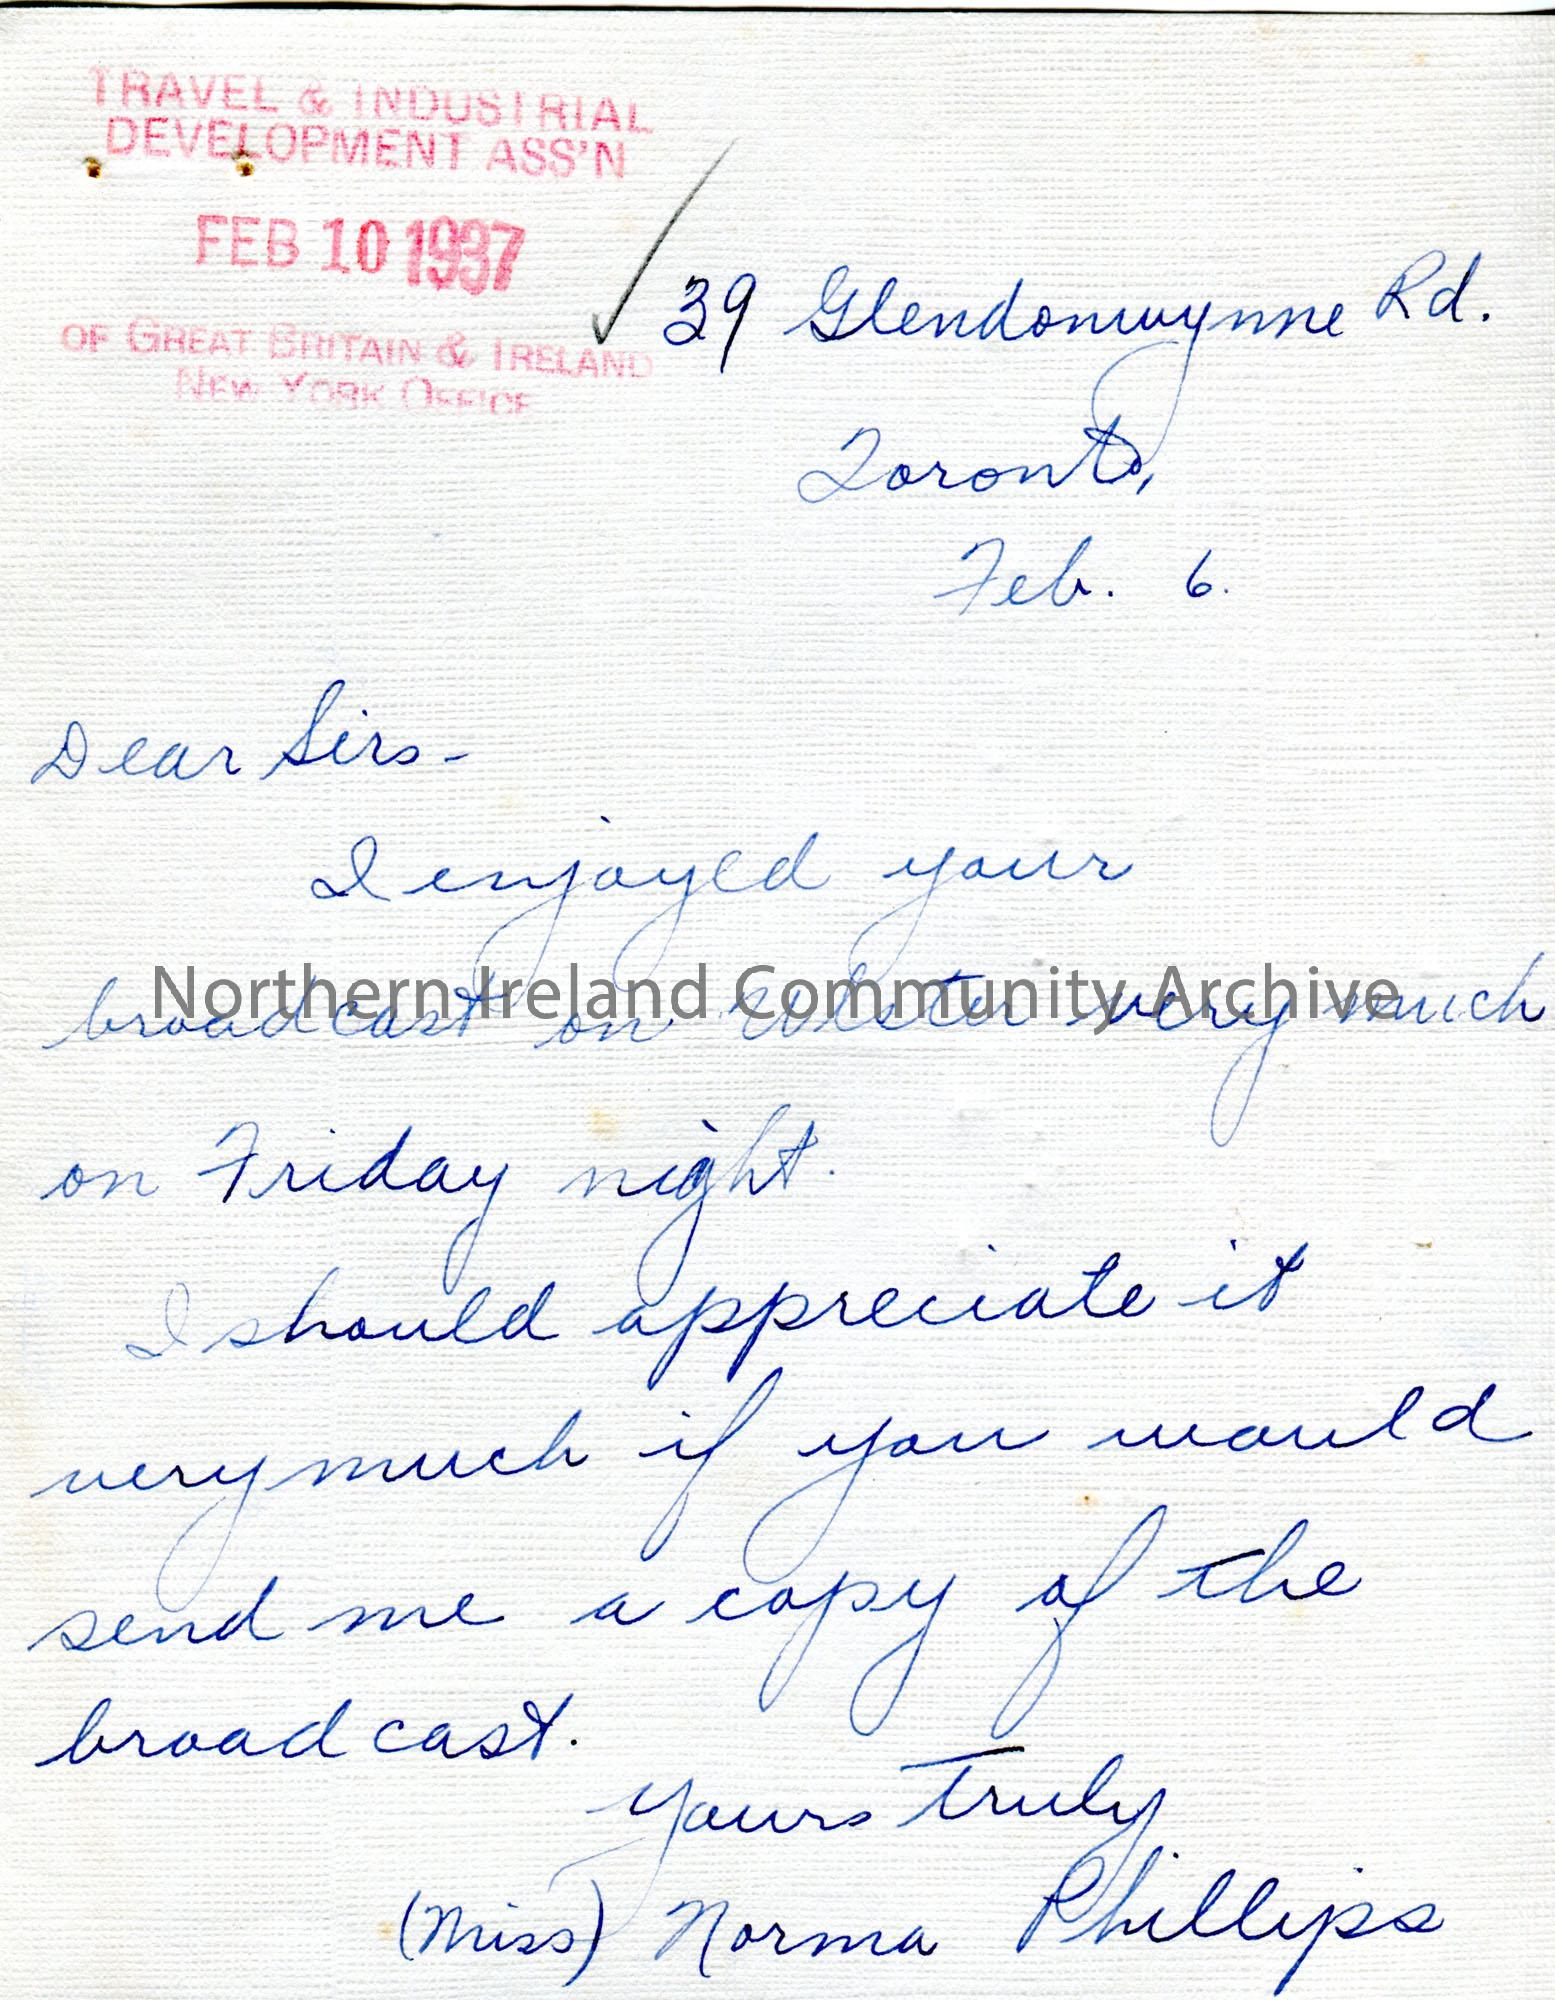 TRAVEL & INDUSTRIAL
DEVELOPMENT ASS'N
FEB 10 1937
OF GREAT BRITAIN & IRELAND
NEW YORK OFFICE
39 Glendonwynne Rd.
Toronto,
Feb. 6.
Dear Sirs-
I enjoyed your
broadcast on Ulster very much
Northern Ireland Community Archive
on Friday night.
I should appreciate it
very much if you would
send me a copy of the
broadcast.
Yours Truly
(Miss) Norma Phillips